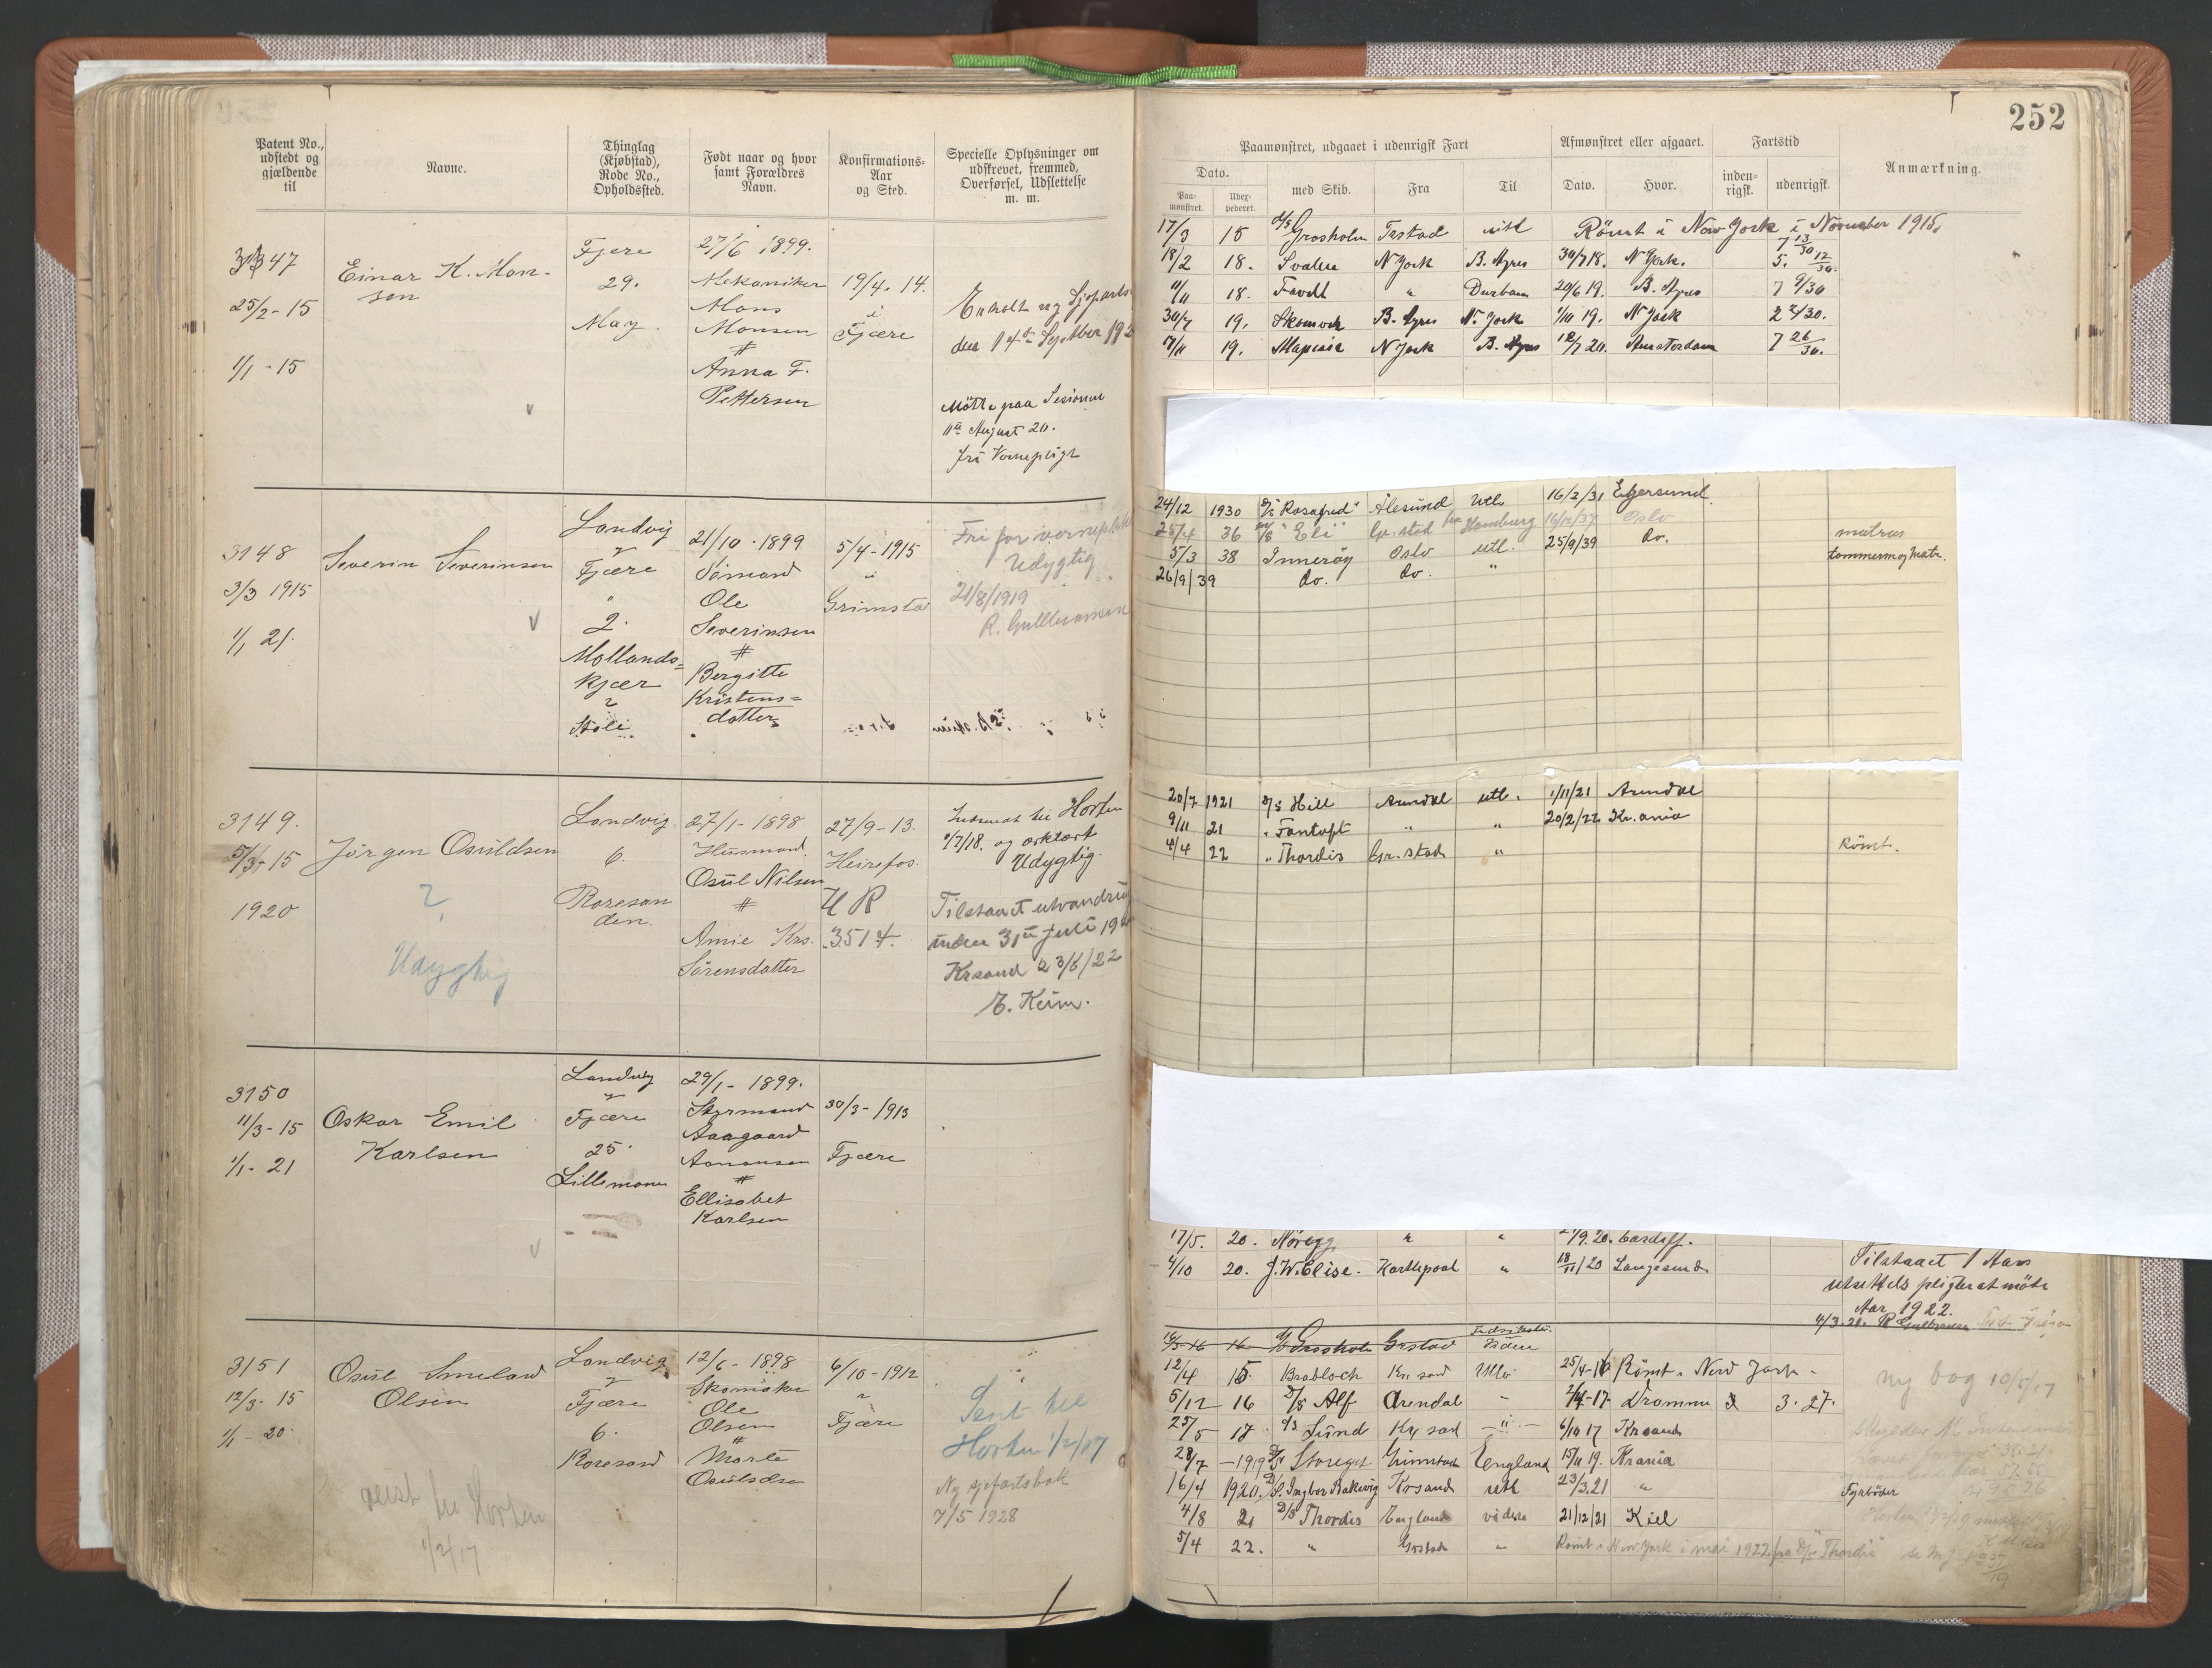 252
Patent No., udstedt og gjældende til
Navne.
Thinglag (Kjøbstad), Rode No., Opholdssted.
Født naar og hvor samt Forældres Navn.
Konfirmations-Aar og Sted.
Specielle Oplysninger om udskrevet, fremmed, Overførsel, Udslettelse m. m.
Paamønstret, udgaaet i udenrigsk Fart
Afmønstret eller afgaaet.
Fartstid
Anmærkning.
Dato.
med Skib.
Fra
Til
Dato.
Hvor.
inden-rigsk.
udenrigsk.
Paa-mønstret.
Udex-pederet.
3147
25/2 - 15
1/1 - 15
Einar K. Mon-
sen
Fjære
29.
Vaag
27/6 1899.
Mekaniker
Mons
Monsen
#
Anna F.
Pettersen
19/4. 14.
i
Fjære
Erholdt ny Sjøfarts
den 14de Septber 192
Mötte paa Sesionen
11te August 20.
fri Vernepligt
17/3 15 Grosholm Grstad utl Römt i New York i November 1915.
18/2 18. Svalen N York B. Ayres 30/7 18. N York. 5. 12/30.
11/11 18. " Durban 20/6 19. B. Ayres 7 9/30
30/7 19. B. Ayres N. York 1/10 19. N York 2 2/30.
7/11 19. N York B. Ayres 12/7 20. Amsterdam 7 26/30.
3148
3/3 1915
1/1 21.
Severin Severinsen
Landvig
Fjære
"
2.
Mollands=
kjær
Støle
21/10 - 1899
Sømand
Ole
Severinsen
#
Bergitte
Kristens=
datter
5/4 - 1915
"
Grimstad
Fri for vernepligt
Udygtig
21/8/1919
R. Gulbransen
24/12 1930 D/S "Rosafred" Ålesund Utl. 16/2/31 Egersund
25/4 36 M/S "Eli" Gr.stad Hamburg 16/10/37 Oslo matros
5/3 38 Innerøy Oslo utl. 25/9/39 do. tømmerm og Matr.
26/9/39 do. do. "
3149.
5/3 - 15
1920
Jörgen Osuldsen
?
Udygtig
Landvig
6.
Roresan
den.
27/1 - 1898
Husmand
Osul Nilsen
#
Amie Krs.
Sörensdatter
27/9 - 13.
Heirefos.
U R
3514.
Indsendt til Horten
1/7/18. og erklært
Udygtig
Tilstaaet utvandring
inden 31te Juli 19
Krsand 23/6/22
E. Keim.
20/7 1921 D/S Hill Arendal utl. 1/11/21 Arendal
9/11 21 " Fantoft " " 20/2/22 Kr.ania
4/4 22 " Thordis Gr.stad " Rømt.
3150
11/3 - 15
1/1 - 21
Oskar Emil
Karlsen
Landvig
Fjære
25.
Lillemoen
29/1 - 1899.
Styrmand
Aagaard
Aanonsen
#
Ellisabet
Karlsen
30/3 - 1913
Fjære
17/5. 20. Noregg " " 2/9.20. Cardiff.
4/10 20. J.W. Elise. Hartlepool " 18/11/20 Langesund
Tilstaaet 1 Aars
utsettels pligter at möte
Aar 1922.
4/3.21. R Gulbransen
3151
12/3 - 15
1/1 - 20
Osul Smeland
Olsen
Landvig
Fjære
6.
Roresand
12/6 - 1898
Skomaker
Ole
Olsen
#
Marte
Osulsdtr
6/10 - 1912
"
Fjære
Sent til
Horten 1/2/17
Ny sjøfartsbok
7/5 1928
reist til Horten
1/2/17
Grosholm Grstad
12/4 15 Krsand Utl. 25/4-16 Römt i New York
5/12 16 D/S Alf Arendal " 17 Drammen 3. 27.
25/5 17 D/S Lund Krsand " 6/10 17 Krsand
28/7 - 1919 D/S Storegut Grimstad England 15/11 19. Krania
16/4 1920. D/S. Ingbor Bakevig Krsand utl 23/3.21 " Fyrbøder
4/8 21 D/S Thordis England videre 21/12/21 Kiel
5/4 22. " Grstad " Rømt i New York i mai 1922 fra D/S "Thordis"
ny bog 10/5/17